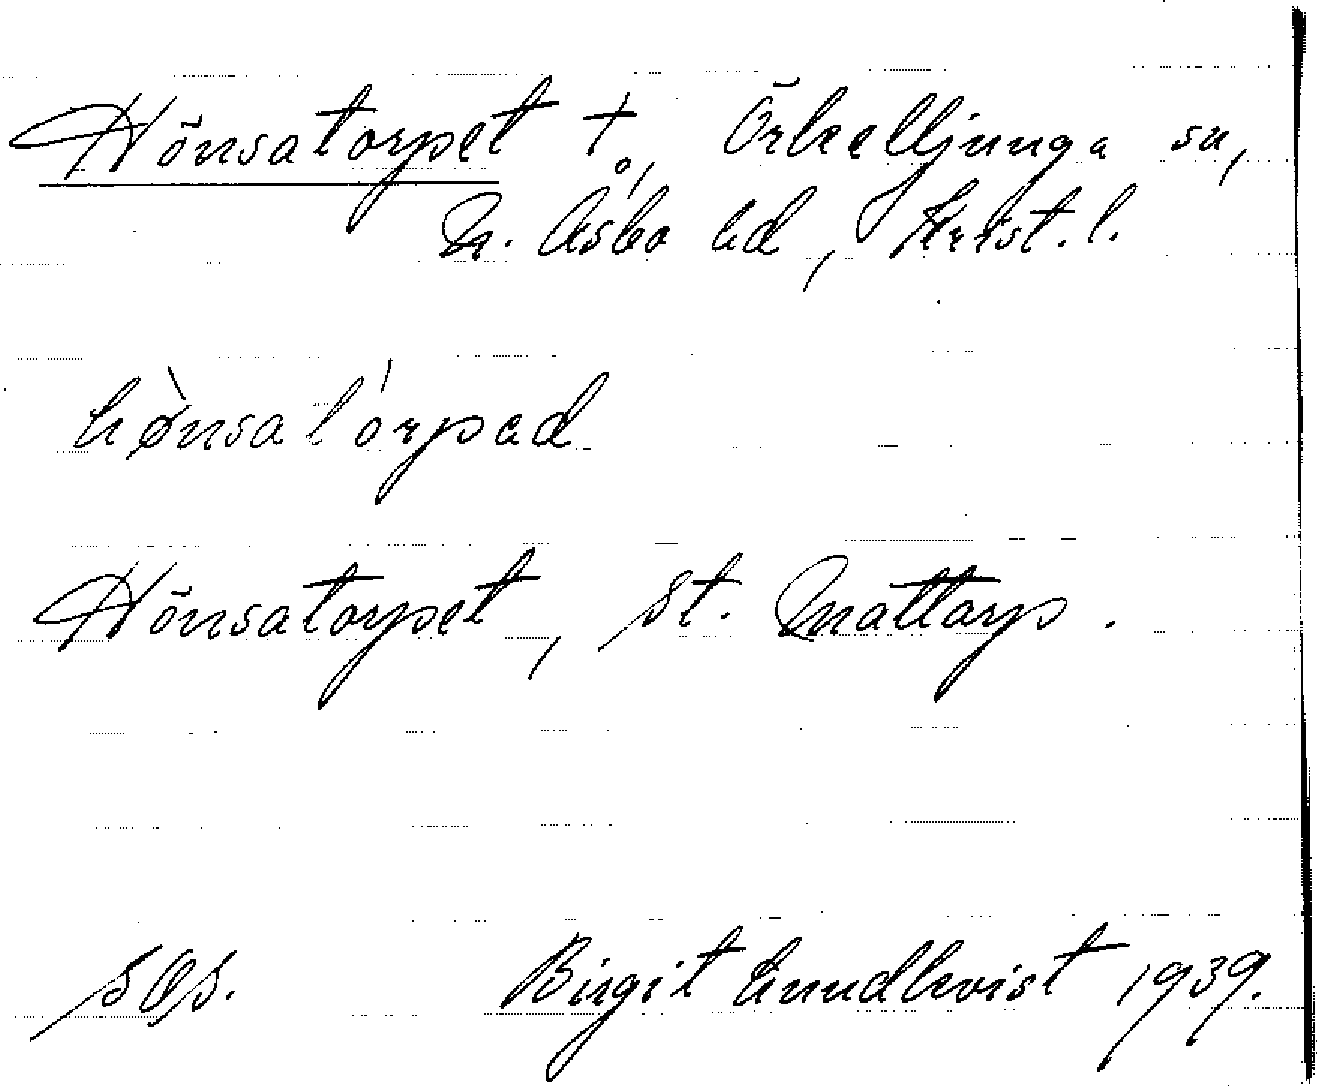 Hönsatorpet +, Örkelljunga sn,
N. Åsbo hd, Krist. l.
hø̀nsatórpad
Hönsatorpet, St. Mattarp.
sOs. Birgit Lundkvist 1939.